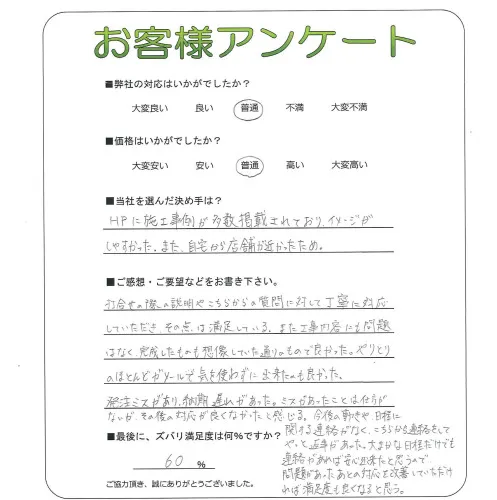 お客様アンケート
■弊社の対応はいかがでしたか?
大変良い 良い 普通 不満 大変不満
■価格はいかがでしたか?
大変安い 安い 普通 高い 大変高い
■当社を選んだ決め手は?
HPに施工事例が多数掲載されており、イメージが
しやすかった。また、自宅から店舗が近かったため。
■ご感想・ご要望などをお書き下さい。
打合せの際の説明やこちらからの質問に対して丁寧に対応
していただき、その点は満足している。また工事内容にも問題
はなく、完成したものも想像していた通りのもので良かった。やりとり
のほとんどがメールで気を使わずに出来たのも良かった。
発注ミスがあり、納期遅れがあった。ミスがあったことは仕方
ないが、その後の対応が良くなかったと感じる。今後の動きや日程に
関する連絡がなく、こちらから連絡をして
やっと返事があった。大まかな日程だけでも
連絡があれば安心出来たと思うので
問題があったあとの対応を改善していただけ
れば満足度も良くなると思う。
■最後に、ズバリ満足度は何%ですか?
60 %
ご協力頂き、誠にありがとうございました。